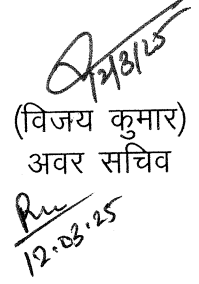 12/3/25
(विजय कुमार)
अवर सचिव
12.03.25